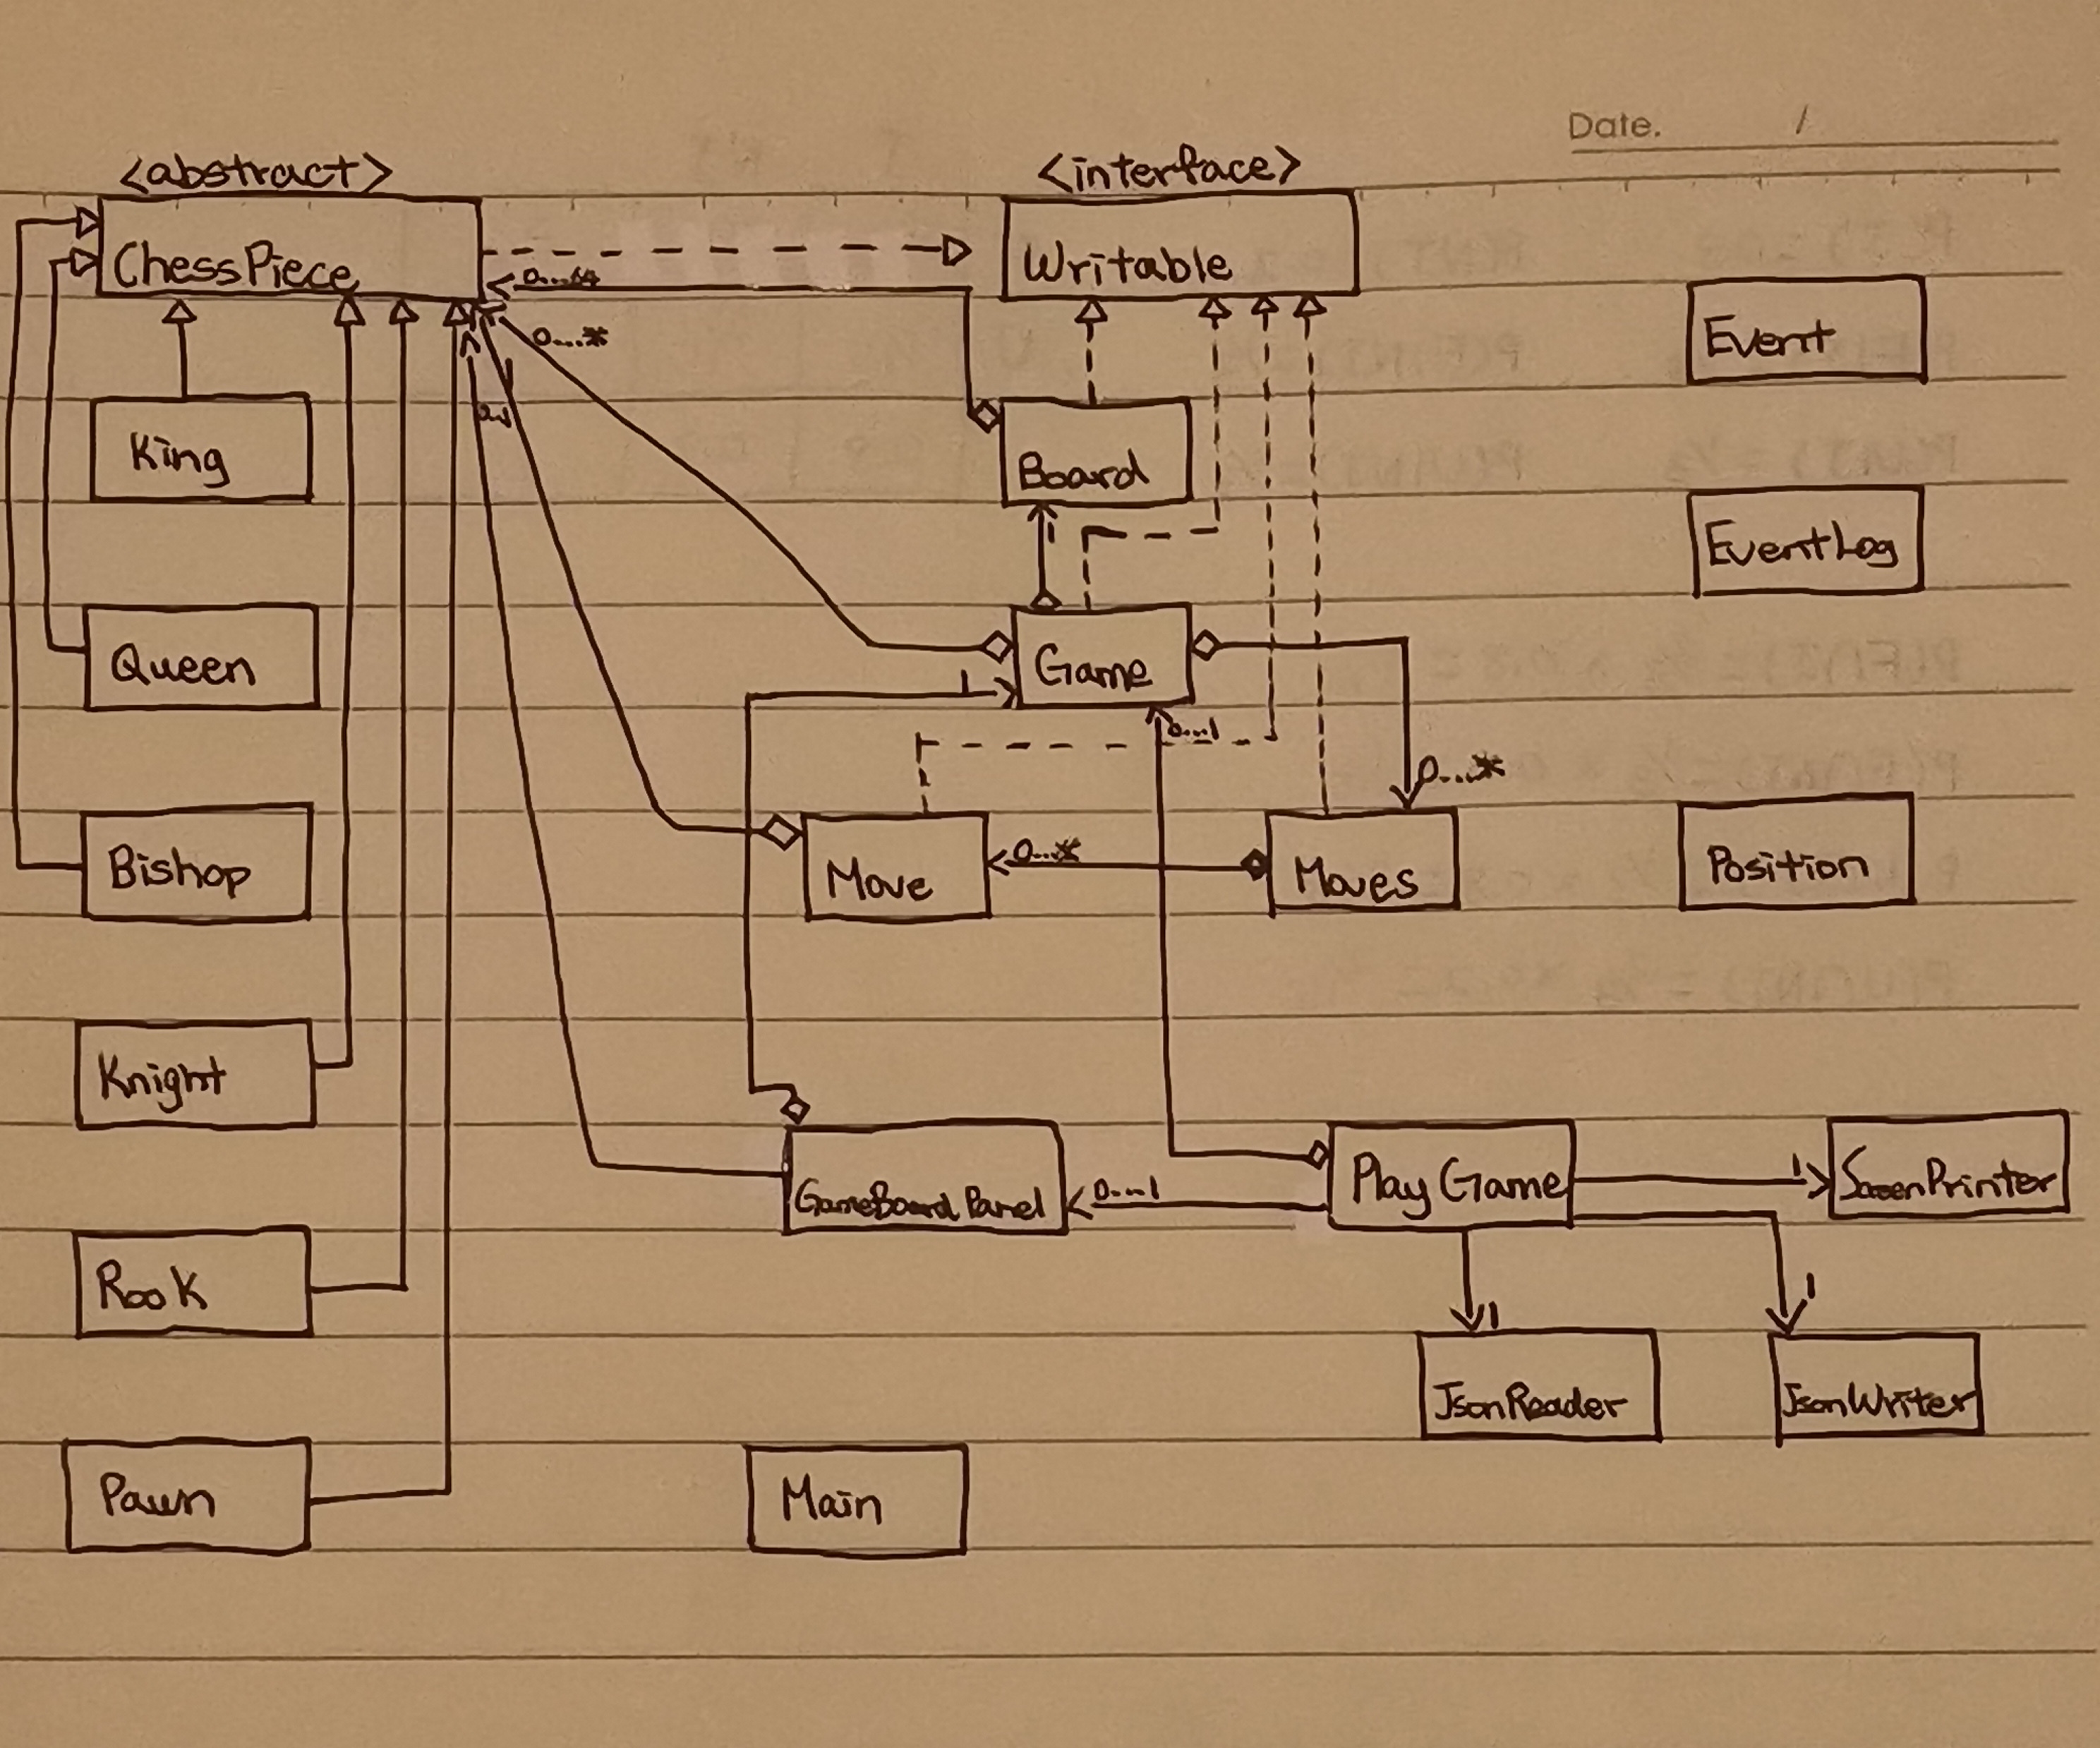 Date. /
<abstract>
<interface>
ChessPiece
Writable
0...64
0...*
Event
1
0..1
King
Board
1
EventLog
Queen
Game
1
0...1
0...*
Bishop
Move
0...*
Moves
Position
Knight
GameBoardPanel
0...1
Play Game
1
ScreenPrinter
Rook
1
1
JsonReader
JsonWriter
Pawn
Main